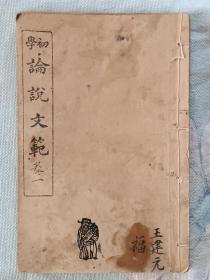 初學論說文範 卷一
王建元
福